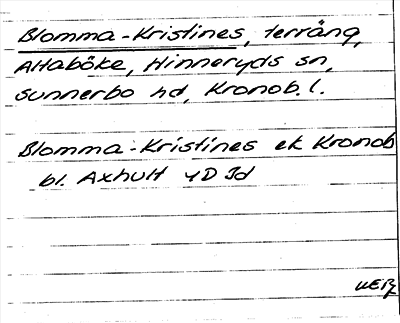 Blomma-Kristines, terräng,
Altaböke, Hinneryds sn,
Sunnerbo hd, Kronob. l.
Blomma-Kristines ek Kronob
bl. Axhult 4D Id